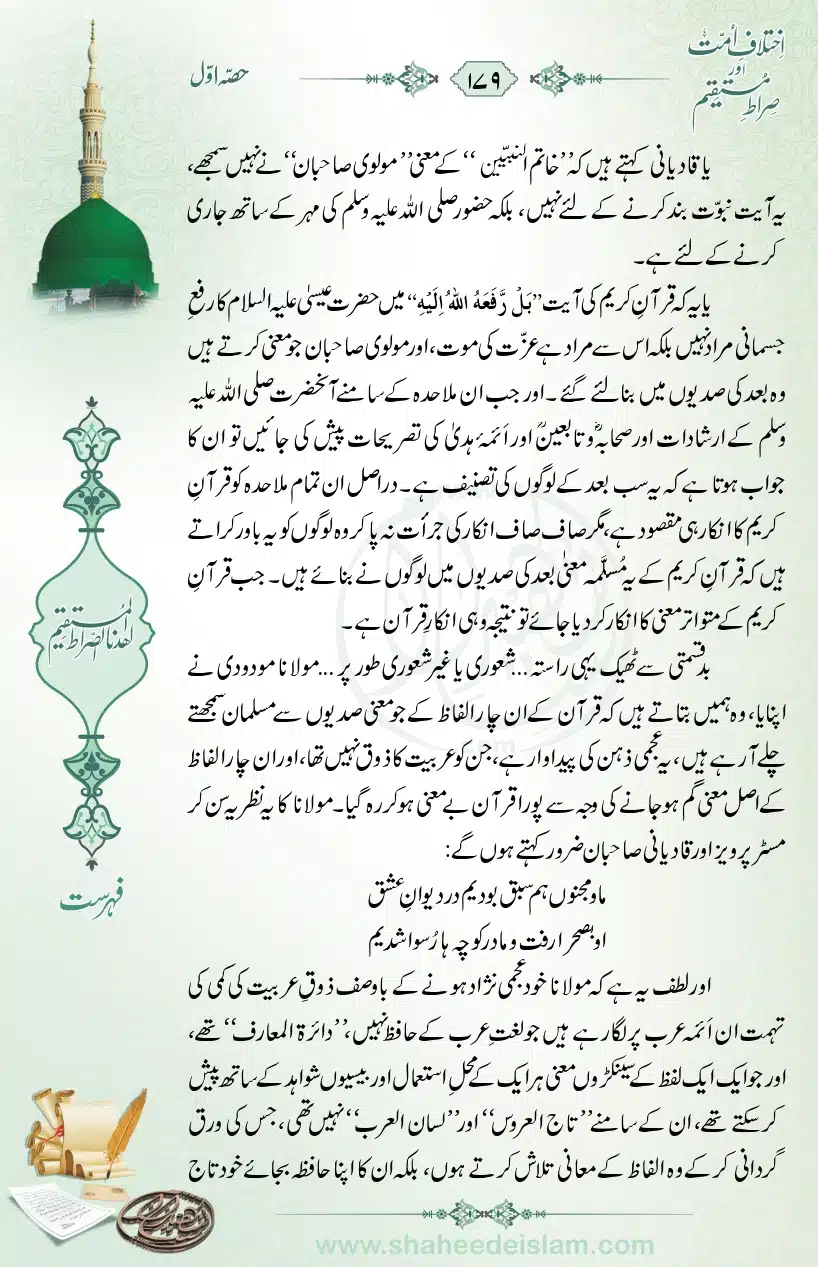 اِختلافِ اُمّت
اور
صِراطِ مُستقیم
۱۷۹
حصّہ اوّل
یا قادیانی کہتے ہیں کہ ’’خاتم النبیّین‘‘ کے معنی ’’مولوی صاحبان‘‘ نے نہیں سمجھے،
یہ آیت نبوّت بند کرنے کے لئے نہیں، بلکہ حضور صلی اللہ علیہ وسلم کی مہر کے ساتھ جاری
کرنے کے لئے ہے۔
یا یہ کہ قرآنِ کریم کی آیت ’’بَلْ رَّفَعَهُ اللهُ إِلَيْهِ‘‘ میں حضرت عیسیٰ علیہ السلام کا رفعِ
جسمانی مراد نہیں بلکہ اس سے مراد ہے عزّت کی موت، اور مولوی صاحبان جو معنی کرتے ہیں
وہ بعد کی صدیوں میں بنالئے گئے۔ اور جب ان ملاحدہ کے سامنے آنحضرت صلی اللہ علیہ
وسلم کے ارشادات اور صحابہؓ و تابعینؒ اور اَئمۂ ہدیٰ کی تصریحات پیش کی جائیں تو ان کا
جواب ہوتا ہے کہ یہ سب بعد کے لوگوں کی تصنیف ہے۔ دراصل ان تمام ملاحدہ کو قرآنِ
کریم کا انکار ہی مقصود ہے، مگر صاف صاف انکار کی جرأت نہ پاکر وہ لوگوں کو یہ باور کراتے
ہیں کہ قرآنِ کریم کے یہ مُسلَّمہ معنیٰ بعد کی صدیوں میں لوگوں نے بنائے ہیں۔ جب قرآنِ
کریم کے متواتر معنی کا انکار کردیا جائے تو نتیجہ وہی انکارِ قرآن ہے۔
بدقسمتی سے ٹھیک یہی راستہ ...شعوری یا غیرشعوری طور پر ... مولانا مودودی نے
اپنایا، وہ ہمیں بتاتے ہیں کہ قرآن کے ان چار الفاظ کے جو معنی صدیوں سے مسلمان سمجھتے
چلے آرہے ہیں، یہ عجمی ذہن کی پیداوار ہے، جن کو عربیت کا ذوق نہیں تھا، اور ان چار الفاظ
کے اصل معنی گم ہوجانے کی وجہ سے پورا قرآن بے معنی ہوکر رہ گیا۔ مولانا کا یہ نظریہ سن کر
مسٹر پرویز اور قادیانی صاحبان ضرور کہتے ہوں گے:
ما و مجنوں ہم سبق بودیم در دیوانِ عشق
او بصحرا رفت و ما در کوچہ ہا رُسوا شدیم
اور لطف یہ ہے کہ مولانا خود عجمی نژاد ہونے کے باوصف ذوقِ عربیت کی کمی کی
تہمت ان اَئمہ عرب پر لگارہے ہیں جو لغتِ عرب کے حافظ نہیں، ’’دائرۃ المعارف‘‘ تھے،
اور جو ایک ایک لفظ کے سینکڑوں معنی ہر ایک کے محلِ استعمال اور بیسیوں شواہد کے ساتھ پیش
کرسکتے تھے، ان کے سامنے ’’تاج العروس‘‘ اور ’’لسان العرب‘‘ نہیں تھی، جس کی ورق
گردانی کرکے وہ الفاظ کے معانی تلاش کرتے ہوں، بلکہ ان کا اپنا حافظہ بجائے خود تاج
اهدنا الصّراط المُستقيم
فہرست
www.shaheedeislam.com